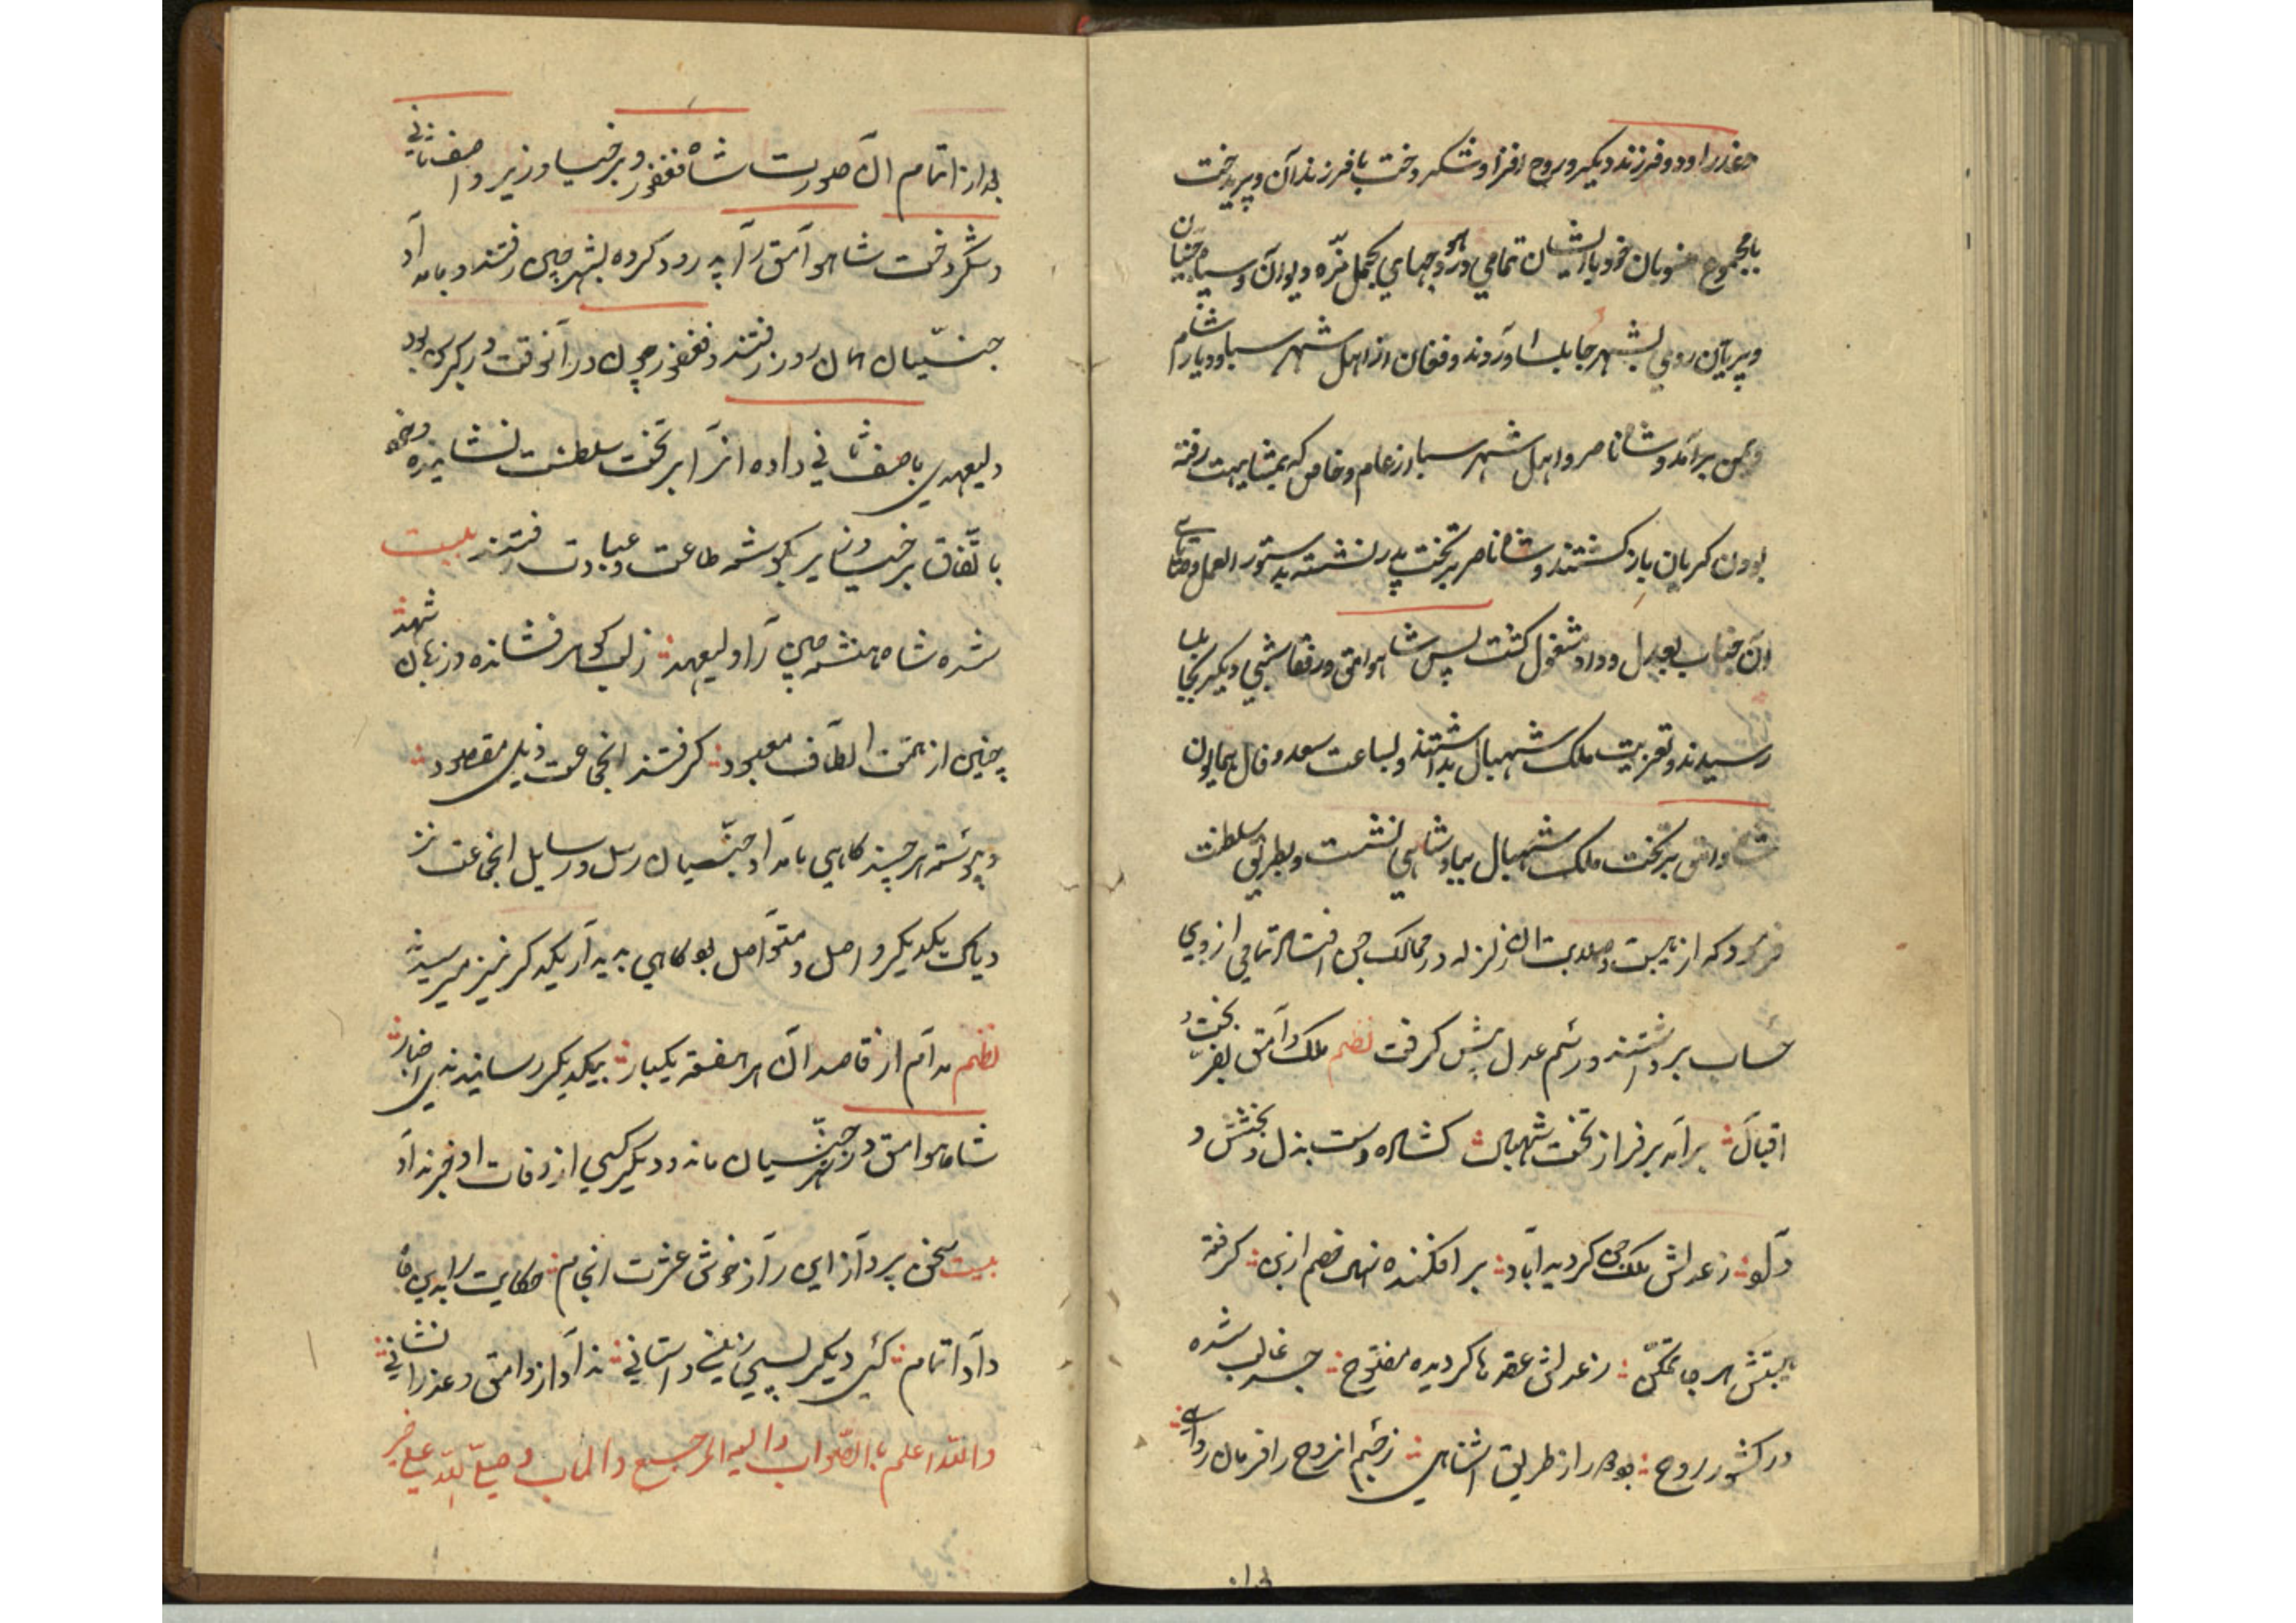 و عذرا و دو فرزند دیکر و روح افزا و شکر دخت با فرزندان و پریدخت
با مجموع خویان خود با ایشان تمامی در هودجهای مجمل نره دیوان و سپاه جنیان
و پریان روی بشهر جابلسا آوردند و فغان از اهل شهر سبا و دیار شام
و یمن برآمد و شاه ناصر و اهل شهر سبا از عام و خاص که بمشایعت رفته
بودند کریان باز کشتند و شاه ناصر بر تخت پدر نشسته بدستور العمل وصایای
آن جناب بعدل و داد مشغول کشت پس شاه وامق و رفقا شبی دیکر بجابلسا
رسیدند و تعزیت ملک شهبال بداشتند و بساعت سعد و فال همایون
شاه وامق بر تخت ملک شهبال بپادشاهی نشست و بطریق سلطنت
فرمود که از هیبت و صلابت آن زلزله در ممالک جن افتاد تمامی از وی
حساب برداشتند و رسم عدل پیش کرفت نظم ملک وامق بفر بخت و
اقبال برآمد بر فراز تخت شهبال کشاده دست بذل و بخشش و
داد ز عدلش ملک جن کردید آباد بر افکنده نهال خصم از بن کرفته
هیبتش هر جا تمکن ز عدلش عقدها کردیده مفتوح جسد غالب شده
در کشور روح بود از طریق آشنایی ز جسم از روح را فرمان روایی
بعد از اتمام آن صورت شاه فغفور و برخیا وزیر و آصف ثانی
و شکر دخت شاه وامق را پدرود کرده بشهر چین رفتند و بامداد
جنیان همان روز رفتند و فغفور چون در آنوقت در کبر سن بود
ولیعهدی باصف ثانی داده او را بر تخت سلطنت نشانیده و خود
باتفاق برخیا وزیر بکوشه طاعت و عبادت رفتند بیت
شده شاهنشه چین را ولیعهد ز لب کوهر فشانده وز زبان شهد
چنین از همت الطاف معبود کرفتند آنجماعت ذیل مقصود
و پیوسته هر چند کاهی بامداد جنیان رسل و رسایل آنجماعت نزد
یکدیکر واصل و متواصل بود کاهی بدیدار یکدیکر نیز میرسیدند
نظم مدام از قاصدان هر هفته یکبار بیکدیکر رسانیدندی اخبار
شاه وامق در شهر جنیان ماند و دیکر کسی از وفات او خبر نداد
بیت سخن پرداز این راز خوش عشرت انجام حکایت را بدین جا
داد اتمام کسی دیکر پس از وی داستانی نداد از وامق و عذرا نشانی
والله اعلم بالصواب والیه المرجع والماب و صلی الله علی خیر